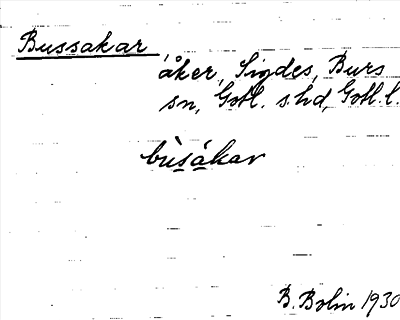 Bussakar
åker, Sigdes, Burs
sn, Gotl. s. hd, Gotl. l.
bùsákar
B. Bolin 1930